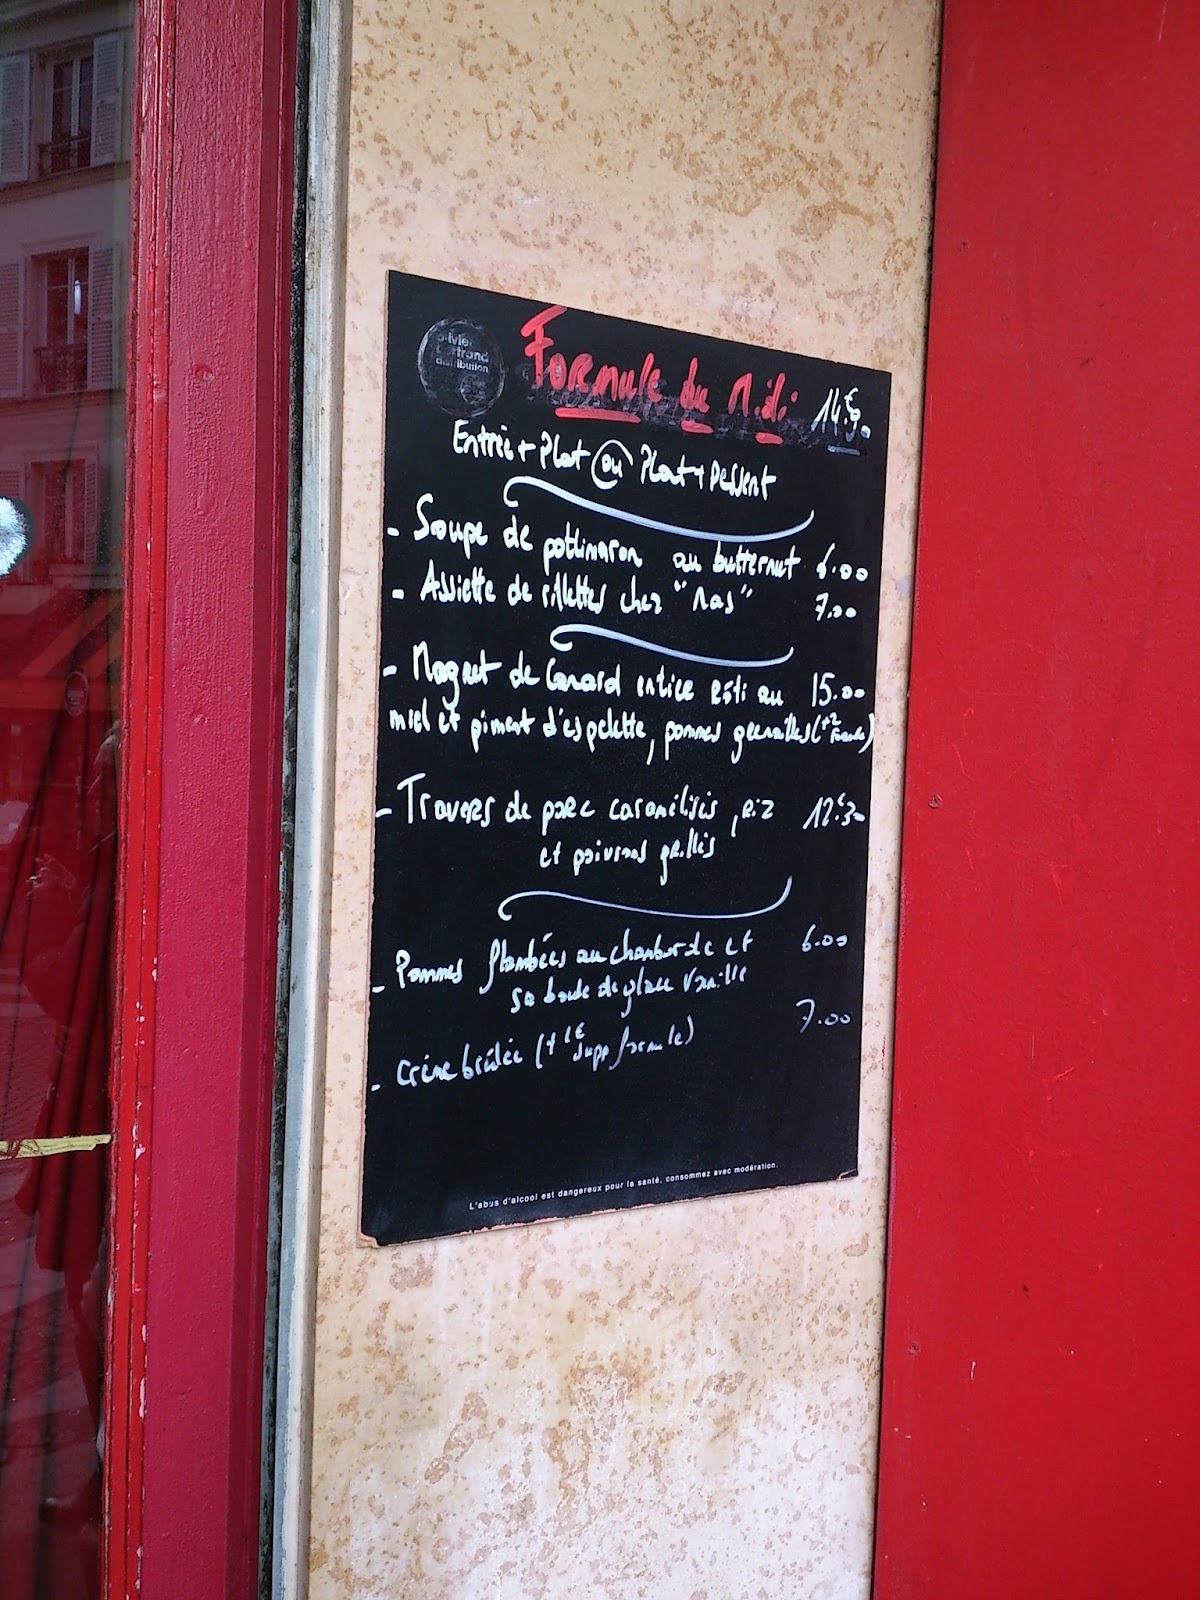 olivier bertrand distribution
Formule du Midi 14€90
Entrée + Plat ou Plat + Dessert
- Soupe de potimaron au butternut 6.00
- Assiette de rillettes chez "Mas" 7.00
- Magret de Canard entier rôti au 15.00
miel et piment d'espelette, pommes grenailles (+2 Formule)
- Travers de porc caramélisés, riz 12€30
et poivrons grillés
- Pommes flambées au chambord et 6.00
sa boule de glace vanille
- Crème brûlée (+1€ supp formule) 7.00
L'abus d'alcool est dangereux pour la santé, consommez avec modération.